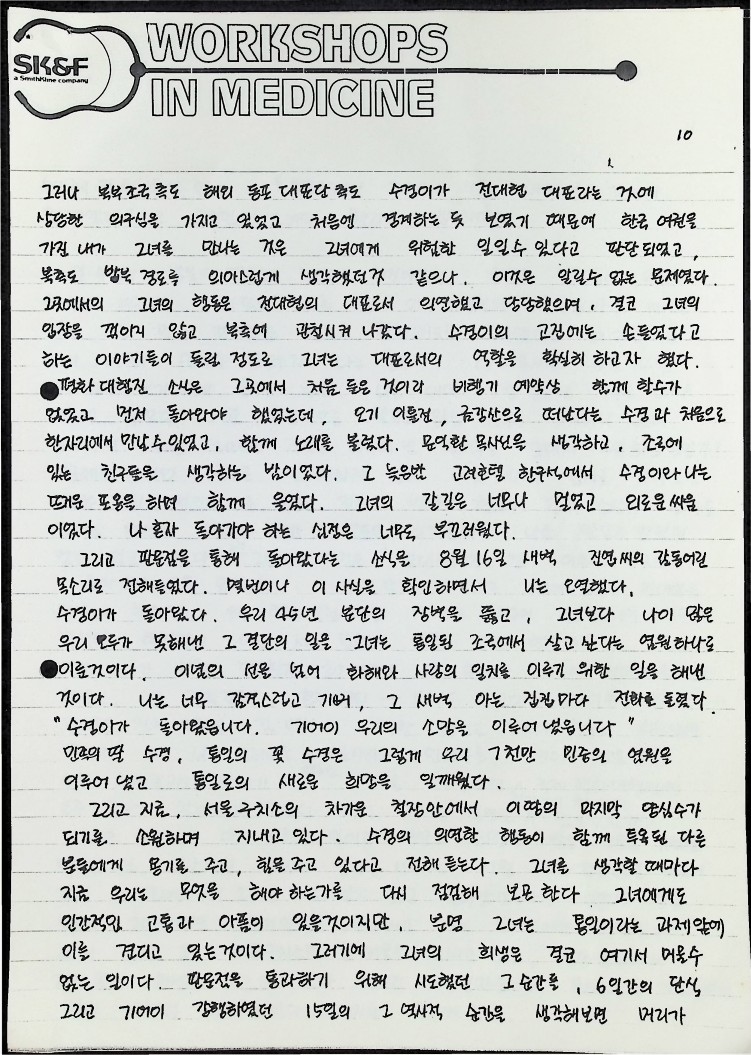 SK&F
a SmithKline company
WORKSHOPS
IN MEDICINE
10
그러나 북부조국 측도 해외 동포 대표단 측도 수경이가 전대협 대표라는 것에
상당한 의구심을 가지고 있었고 처음엔 경계하는 듯 보였기 때문에 한국 여권을
가진 내가 그녀를 만나는 것은 그녀에게 위험한 일일수 있다고 판단되었고,
북측도 방북 경로를 의아스럽게 생각했던것 같으나, 이것은 알릴수 없는 문제였다.
그곳에서의 그녀의 행동은 전대협의 대표로서 의연했고 당당했으며, 결코 그녀의
입장을 꺾이지 않고 북측에 관철시켜 나갔다. 수경이의 고집에는 손들었다고
하는 이야기들이 들릴 정도로 그녀는 대표로서의 역할을 확실히 하고자 했다.
평화대행진 소식은 그곳에서 처음 들은 것이라 비행기 예약상 함께 할수가
없었고 먼저 돌아와야 했었는데, 오기 이틀전, 금강산으로 떠난다는 수경과 처음으로
한자리에서 만날수있었고, 함께 노래를 불렀다. 문익환 목사님을 생각하고, 조국에
있는 친구들을 생각하는 밤이었다. 그 늦은밤 고려호텔 한구석에서 수경이와 나는
뜨거운 포옹을 하며 함께 울었다. 그녀의 갈 길은 너무나 멀었고 외로운 싸움
이었다. 나 혼자 돌아가야 하는 심정은 너무도 부끄러웠다.
그리고 판문점을 통해 돌아왔다는 소식을 8월 16일 새벽 진엽씨의 감동어린
목소리로 전해들었다. 몇번이나 이 사실을 확인하면서 나는 오열했다.
수경이가 돌아왔다. 우리 45년 분단의 장벽을 뚫고, 그녀보다 나이 많은
우리 모두가 못해낸 그 결단의 일을 그녀는 통일된 조국에서 살고 싶다는 염원하나로
이룬것이다. 이념의 선을 넘어 화해와 사랑의 일치를 이루기 위한 일을 해낸
것이다. 나는 너무 감격스럽고 기뻐, 그 새벽 아는 집집마다 전화를 돌렸다.
"수경이가 돌아왔읍니다. 기어이 우리의 소망을 이루어 냈읍니다"
민족의 딸 수경, 통일의 꽃 수경은 그렇게 우리 7천만 민족의 염원을
이루어 냈고 통일로의 새로운 희망을 일깨웠다.
그리고 지금, 서울구치소의 차가운 철창안에서 이땅의 마지막 양심수가
되기를 소원하며 지내고 있다. 수경의 의연한 행동이 함께 투옥된 다른
분들에게 용기를 주고, 힘을 주고 있다고 전해 듣는다. 그녀를 생각할때마다
지금 우리는 무엇을 해야 하는가를 다시 점검해 보곤 한다 그녀에게도
인간적인 고통과 아픔이 있을것이지만, 분명 그녀는 통일이라는 과제앞에
이를 견디고 있는것이다. 그러기에 그녀의 희생은 결코 여기서 머물수
없는 일이다. 판문점을 통과하기 위해 시도했던 그 순간들, 6일간의 단식
그리고 기어이 강행하였던 15일의 그 역사적 순간을 생각해보면 머리가